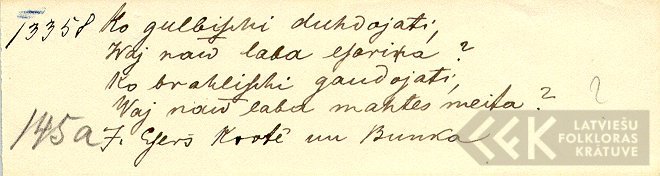 13358 Ko gulbischi duhdojati,
Waj naw laba esariņa?
Ko brahlischi gaudojati,
Waj naw laba mahtes meita? ?
145a J. Esers Krotē un Bunka
LFK LATVIEŠU
FOLKLORAS
KRĀTUVE